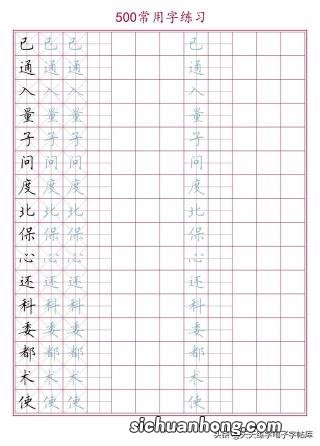 500常用字练习
已 已 已 已
通 通 通 通
入 入 入 入
量 量 量 量
子 子 子 子
问 问 问 问
度 度 度 度
北 北 北 北
保 保 保 保
心 心 心 心
还 还 还 还
科 科 科 科
委 委 委 委
都 都 都 都
术 术 术 术
使 使 使 使
sichuanhong.com